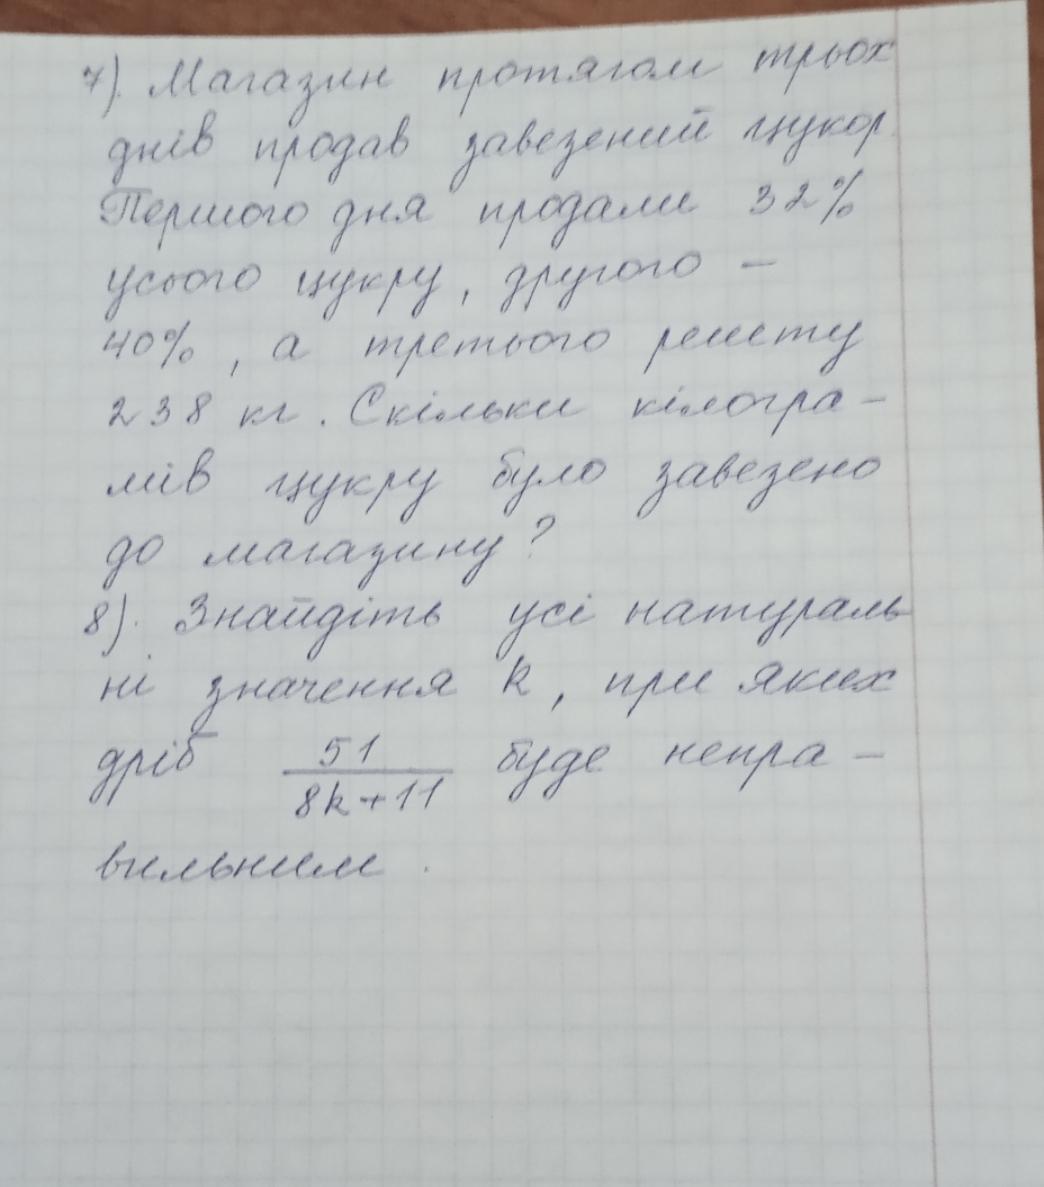 7). Магазин протягом трьох
днів продав завезений цукор.
Першого дня продали 32%
усього цукру, другого –
40%, а третього решту
238 кг. Скільки кілогра-
мів цукру було завезено
до магазину?
8). Знайдіть усі натураль
ні значення k, при яких
дріб 51/(8k+11) буде непра-
вильним.